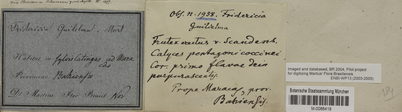 Fridericia Guilielma. Mart
Habitat in sylvis Catingas ad Mara
cás
Provinciae Bahiensis
Dr Martius Iter Brasil. Nov
Obs. n. 1938. Fridericia
Guilielma
Frutex scandens.
Calyces pentagoni coccinei
Cor. primo flavae dein
purpurascentes.
Prope Maracas, prov.
Bahiensis.
Imaged and databased, MR 2004, Pilot project
for digitizing Martius' Flora Brasiliensis
ENBI-WP13 (2003-2005)
Botanische Staatssammlung München
M-0086418